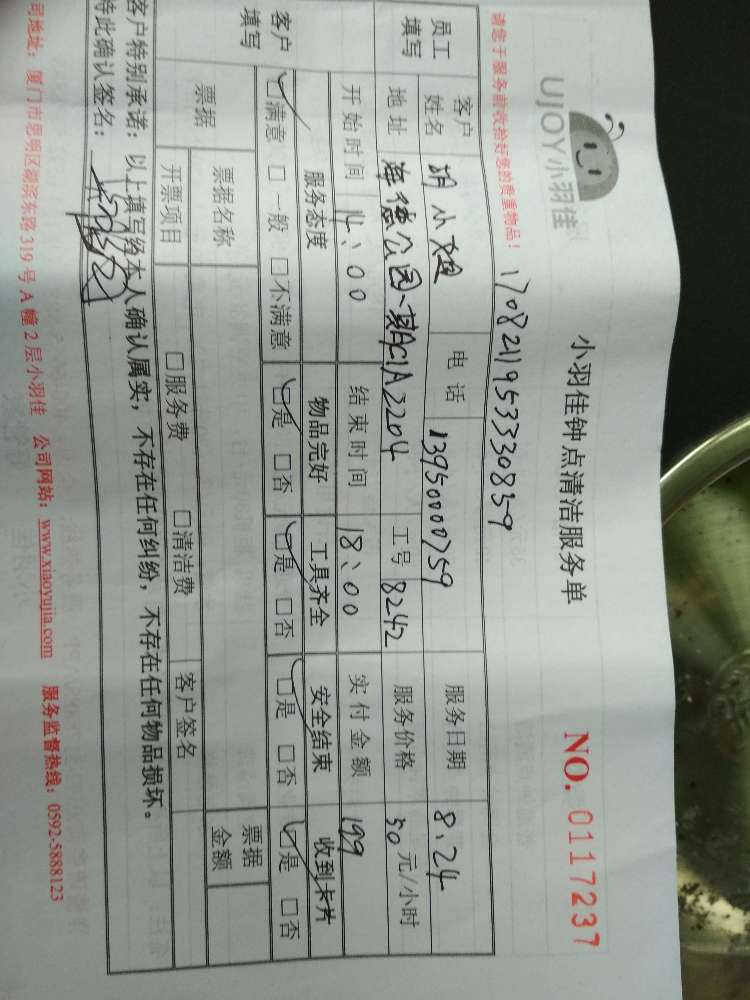 UJOY小羽佳
小羽佳钟点清洁服务单
NO. 0117237
请您于服务前收拾好您的贵重物品!
1708211953330859
员工填写
客户姓名 胡小姐 电话 13950000759 服务日期 8.24
地址 海德公园一期A2204 工号 8242 服务价格 50 元/小时
开始时间 14:00 结束时间 18:00 实付金额 199
客户填写
服务态度 物品完好 工具齐全 安全结束 收到卡片
☑满意 □一般 □不满意 ☑是 □否 ☑是 □否 ☑是 □否 ☑是 □否
票据 票据名称 票据金额
开票项目 □服务费 □清洁费 客户签名
客户特别承诺:以上填写经本人确认属实,不存在任何纠纷,不存在任何物品损坏。
特此确认签名:
司地址:厦门市思明区湖滨东路319号A幢2层小羽佳 公司网站:www.xiaoyujia.com 服务监督热线:0592-5888123